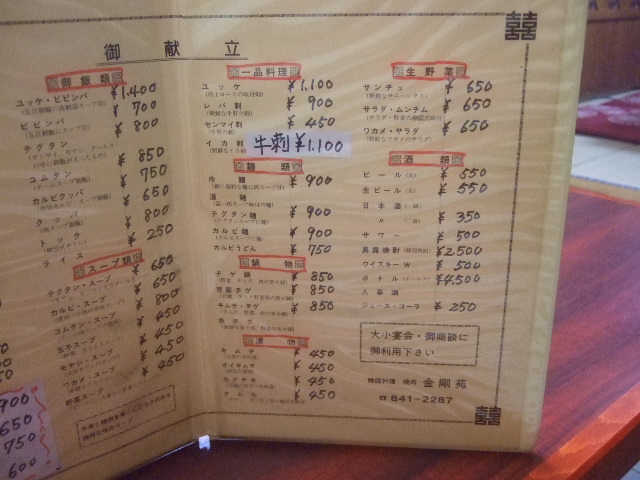 御献立
御飯類
ユッケ・ビビンバ ¥1.400
ビビンバ ¥ 700
テグタン ¥ 800
コムタン ¥ 850
カルビクッパ ¥ 750
クッパ ¥ 650
トック ¥ 800
ライス ¥ 250
スープ類
テグタン・スープ ¥ 650
カルビ・スープ ¥ 650
コムタン・スープ ¥ 800
玉子スープ ¥ 450
モヤシ・スープ ¥ 450
ワカメ・スープ ¥ 450
野菜スープ ¥ 450
900
650
750
600
一品料理
ユッケ ¥1.100
レバ刺 ¥ 900
センマイ刺 ¥ 450
イカ刺
牛刺 ¥1.100
麺類
冷麺 ¥ 900
温麺
テグタン麺 ¥ 900
カルビ麺 ¥ 900
カルビうどん ¥ 750
鍋物
チゲ鍋 ¥ 850
豆腐チゲ ¥ 850
キムチ・チゲ ¥ 850
魚チゲ
漬物
キムチ ¥ 450
オイキムチ ¥ 450
カクテキ ¥ 450
ナムル ¥ 450
生野菜
サンチュ ¥ 650
サラダ・ムンチム ¥ 650
ワカメ・サラダ ¥ 650
酒類
ビール(大) ¥ 550
生ビール(大) ¥ 550
日本酒
〃 ¥ 350
サワー ¥ 500
真露焼酎 ¥2.500
ウイスキーW ¥ 500
ボトル ¥4.500
人参酒
ジュース・コーラ ¥ 250
大小宴会・御商談に
御利用下さい
韓国料理 焼肉 金剛苑
☎641-2287